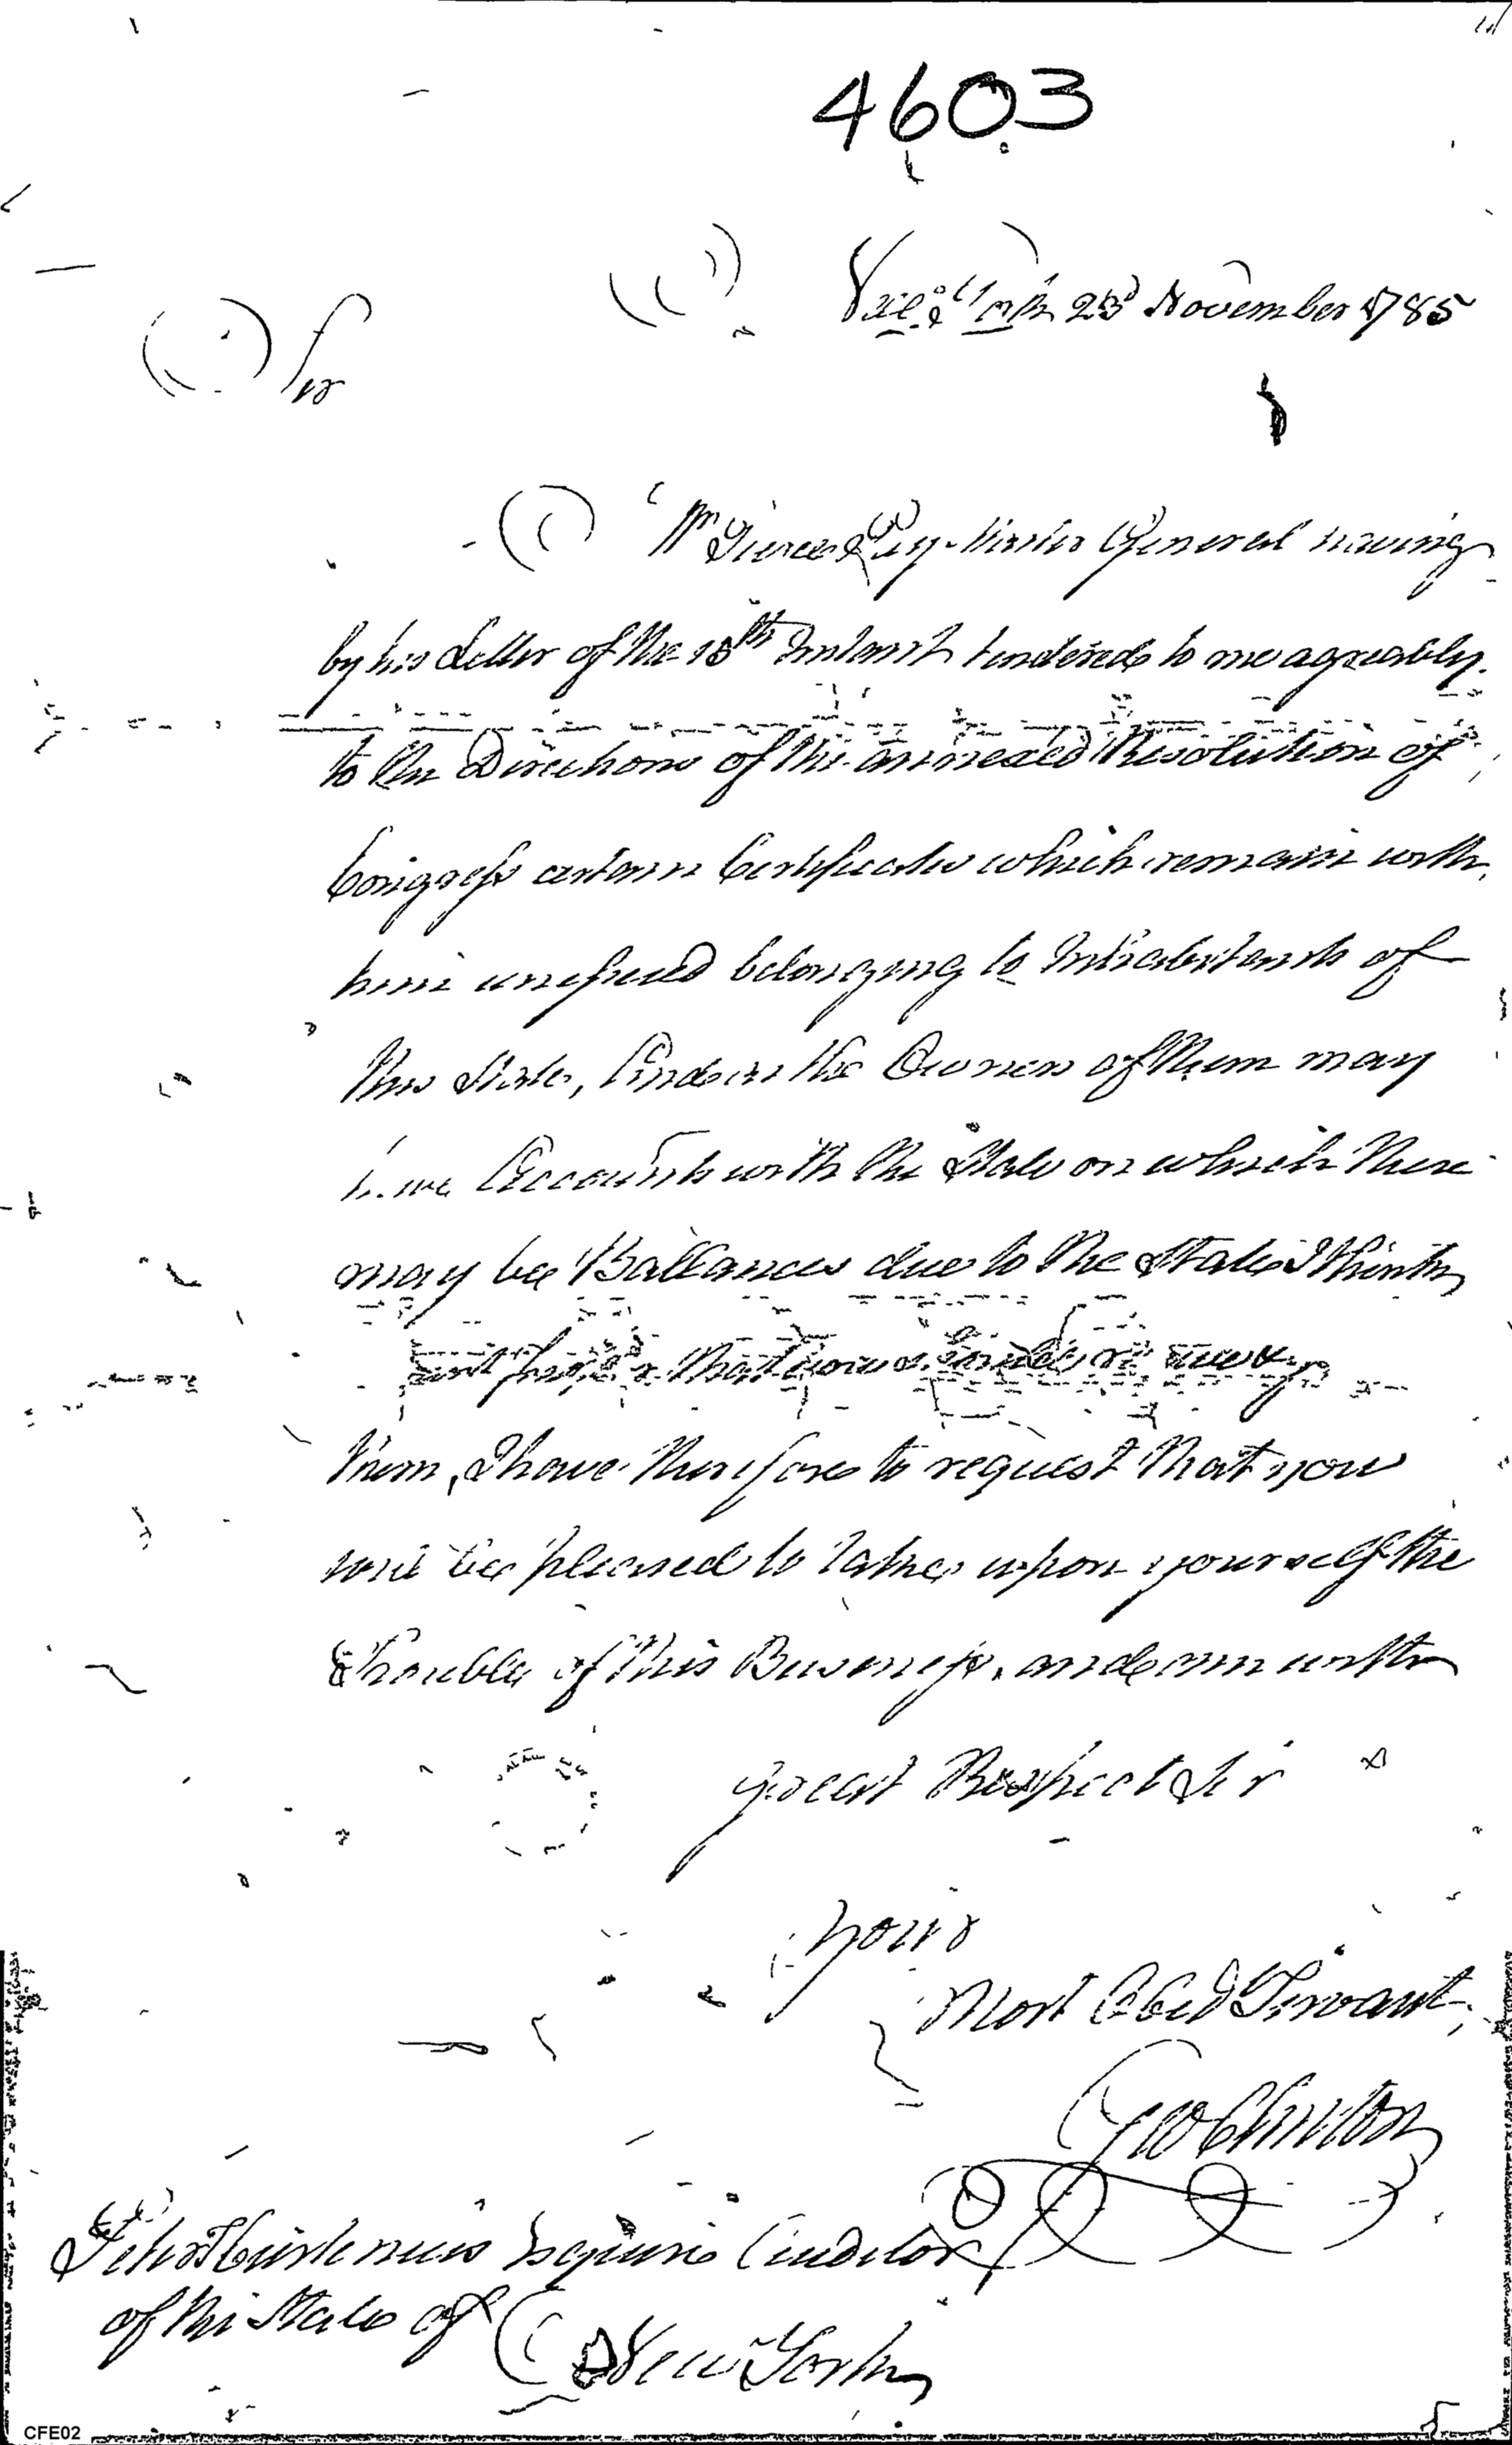 4603
New York 23d November 1785
Sir
Mr Pierce Pay Master General having
by his Letter of the 18th Instant tendered to me agreably
to the Directions of the annexed Resolution of
Congress certain Certificates which remain with
him unissued belonging to Inhabitants of
this State, And as the Owners of them may
have Accounts with the State on which there
may be Ballances due to the State I think
it that you should receive
them, I have therefore to request that you
will be pleased to take upon yourself the
Trouble of this Business, and am with
great Respect Sir
Your
Most Obed Servant
Geo Clinton
Peter T Curtenius Esquire Auditor
of the State of New York
CFE02